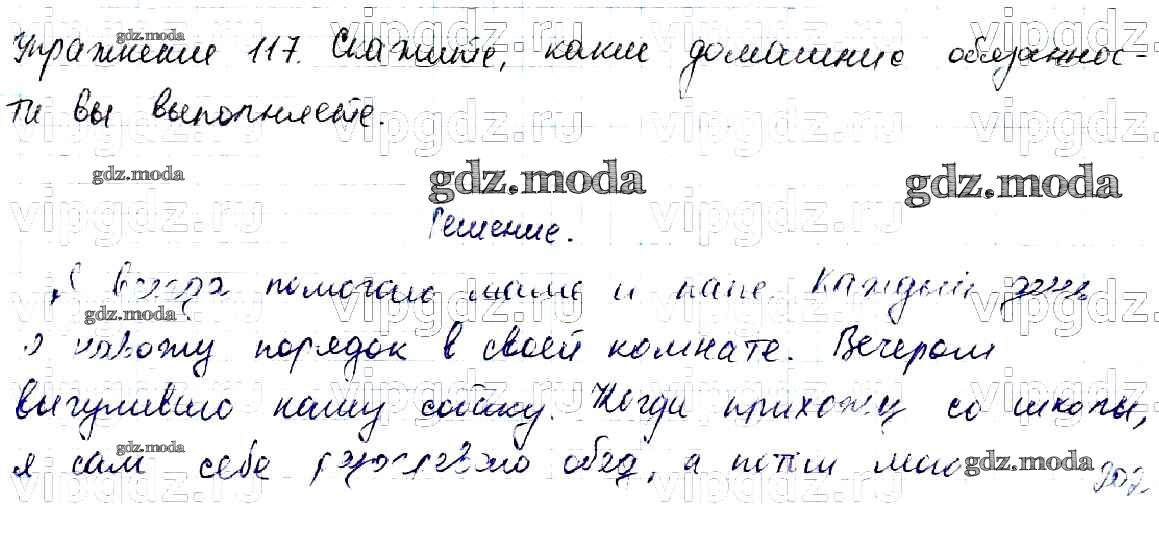 Упражнение 117. Скажите, какие домашние обязаннос-
ти вы выполняете.
gdz.moda
Решение.
Я всегда помогаю маме и папе. Каждый день
я навожу порядок в своей комнате. Вечером
выгуливаю нашу собаку. Когда прихожу со школы,
я сам себе разогреваю обед, а потом мою